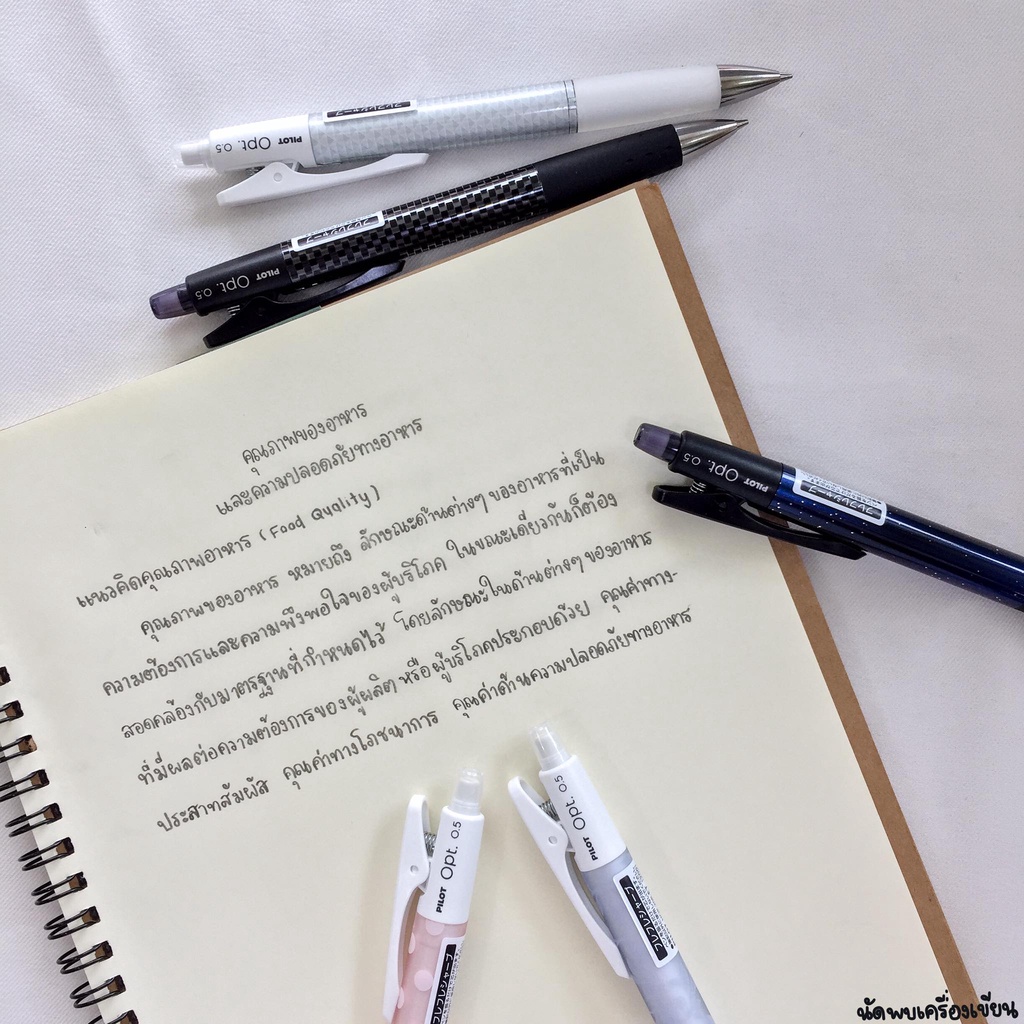 PILOT Opt. 0.5
フレフレシャープ
PILOT Opt. 0.5
フレフレシャープ
คุณภาพของอาหาร
และความปลอดภัยทางอาหาร
แนวคิดคุณภาพอาหาร (Food Quality)
คุณภาพของอาหาร หมายถึง ลักษณะด้านต่างๆ ของอาหารที่เป็น
ความต้องการและความพึงพอใจของผู้บริโภค ในขณะเดียวกันก็ต้อง
สอดคล้องกับมาตรฐานที่กำหนดไว้ โดยลักษณะในด้านต่างๆ ของอาหาร
ที่มีผลต่อความต้องการของผู้ผลิตฯ หรือผู้บริโภคประกอบด้วย คุณค่าทาง-
ประสาทสัมผัส คุณค่าทางโภชนาการ คุณค่าด้านความปลอดภัยทางอาหาร
PILOT Opt. 0.5
フレフレシャープ
PILOT Opt. 0.5
フレフレシャープ
PILOT Opt. 0.5
フレフレシャープ
นัดพบเครื่องเขียน